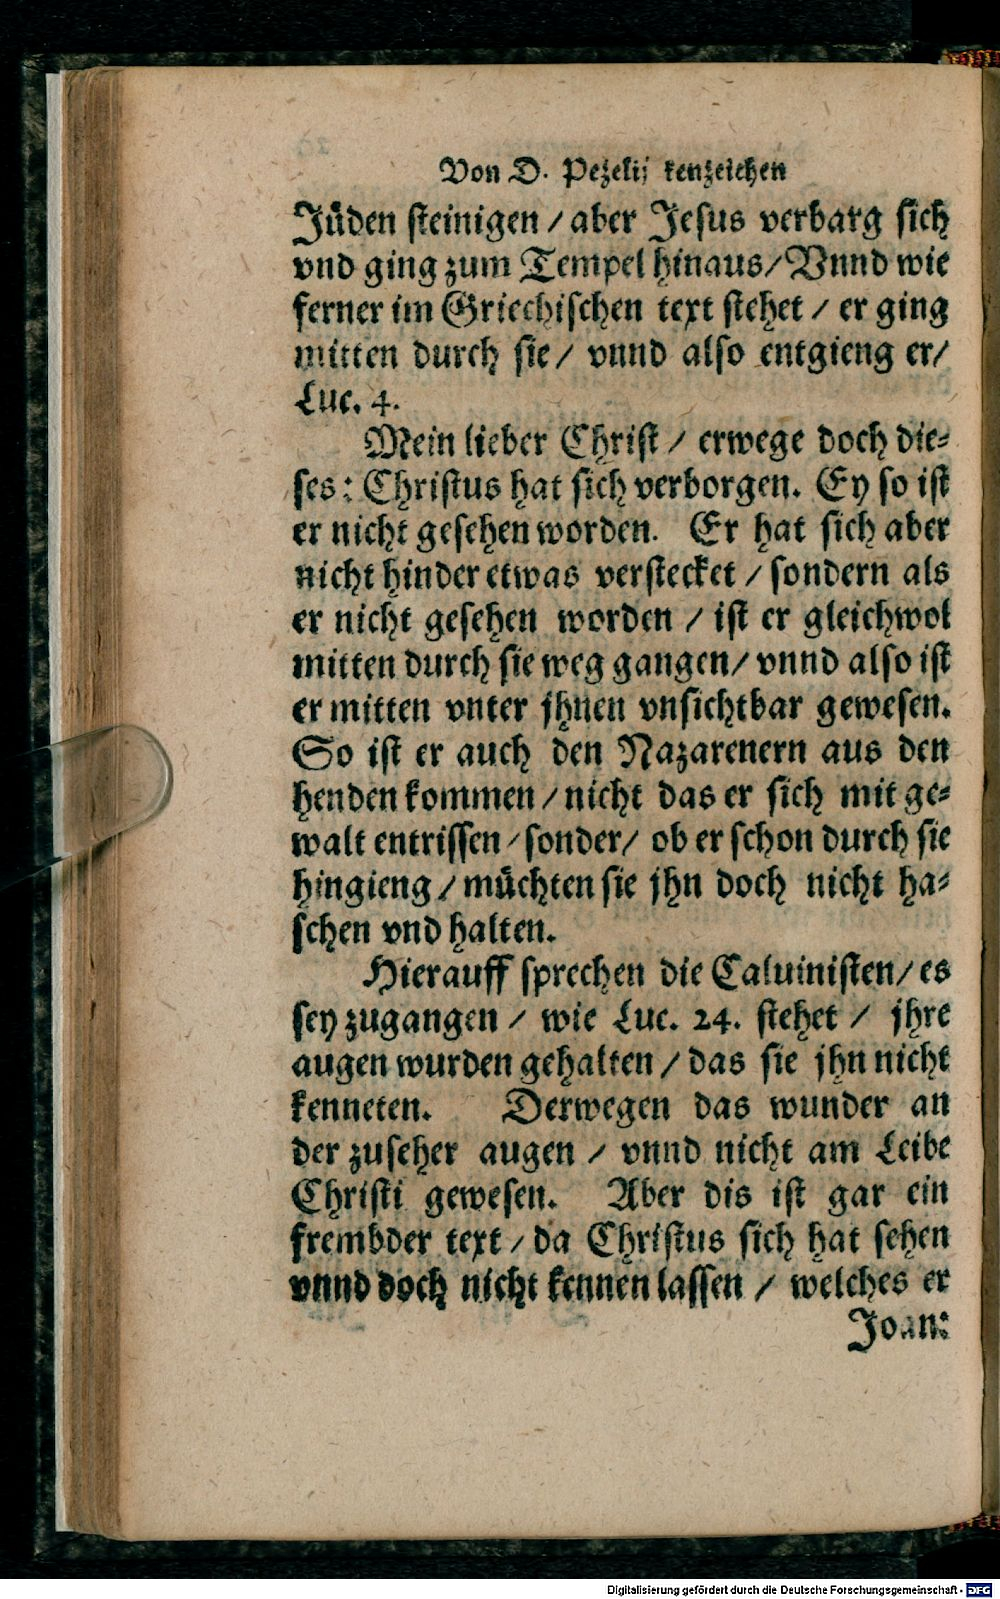 Von D. Pezelij kenzeichen
Jüden steinigen / aber Jesus verbarg sich
vnd ging zum Tempel hinaus / Vnnd wie
ferner im Griechischen text stehet / er ging
mitten durch sie / vnnd also entgieng er /
Luc. 4.
Mein lieber Christ / erwege doch die⸗
ses: Christus hat sich verborgen. Ey so ist
er nicht gesehen worden. Er hat sich aber
nicht hinder etwas verstecket / sondern als
er nicht gesehen worden / ist er gleichwol
mitten durch sie weg gangen / vnnd also ist
er mitten vnter jhnen vnsichtbar gewesen.
So ist er auch den Nazarenern aus den
henden kommen / nicht das er sich mit ge⸗
walt entrissen / sonder / ob er schon durch sie
hingieng / müchten sie jhn doch nicht ha⸗
schen vnd halten.
Hierauff sprechen die Caluinisten / es
sey zugangen / wie Luc. 24. stehet / jhre
augen wurden gehalten / das sie jhn nicht
kenneten. Derwegen das wunder an
der zuseher augen / vnnd nicht am Leibe
Christi gewesen. Aber dis ist gar ein
frembder text / da Christus sich hat sehen
vnnd doch nicht kennen lassen / welches er
Joan:
Digitalisierung gefördert durch die Deutsche Forschungsgemeinschaft - DFG